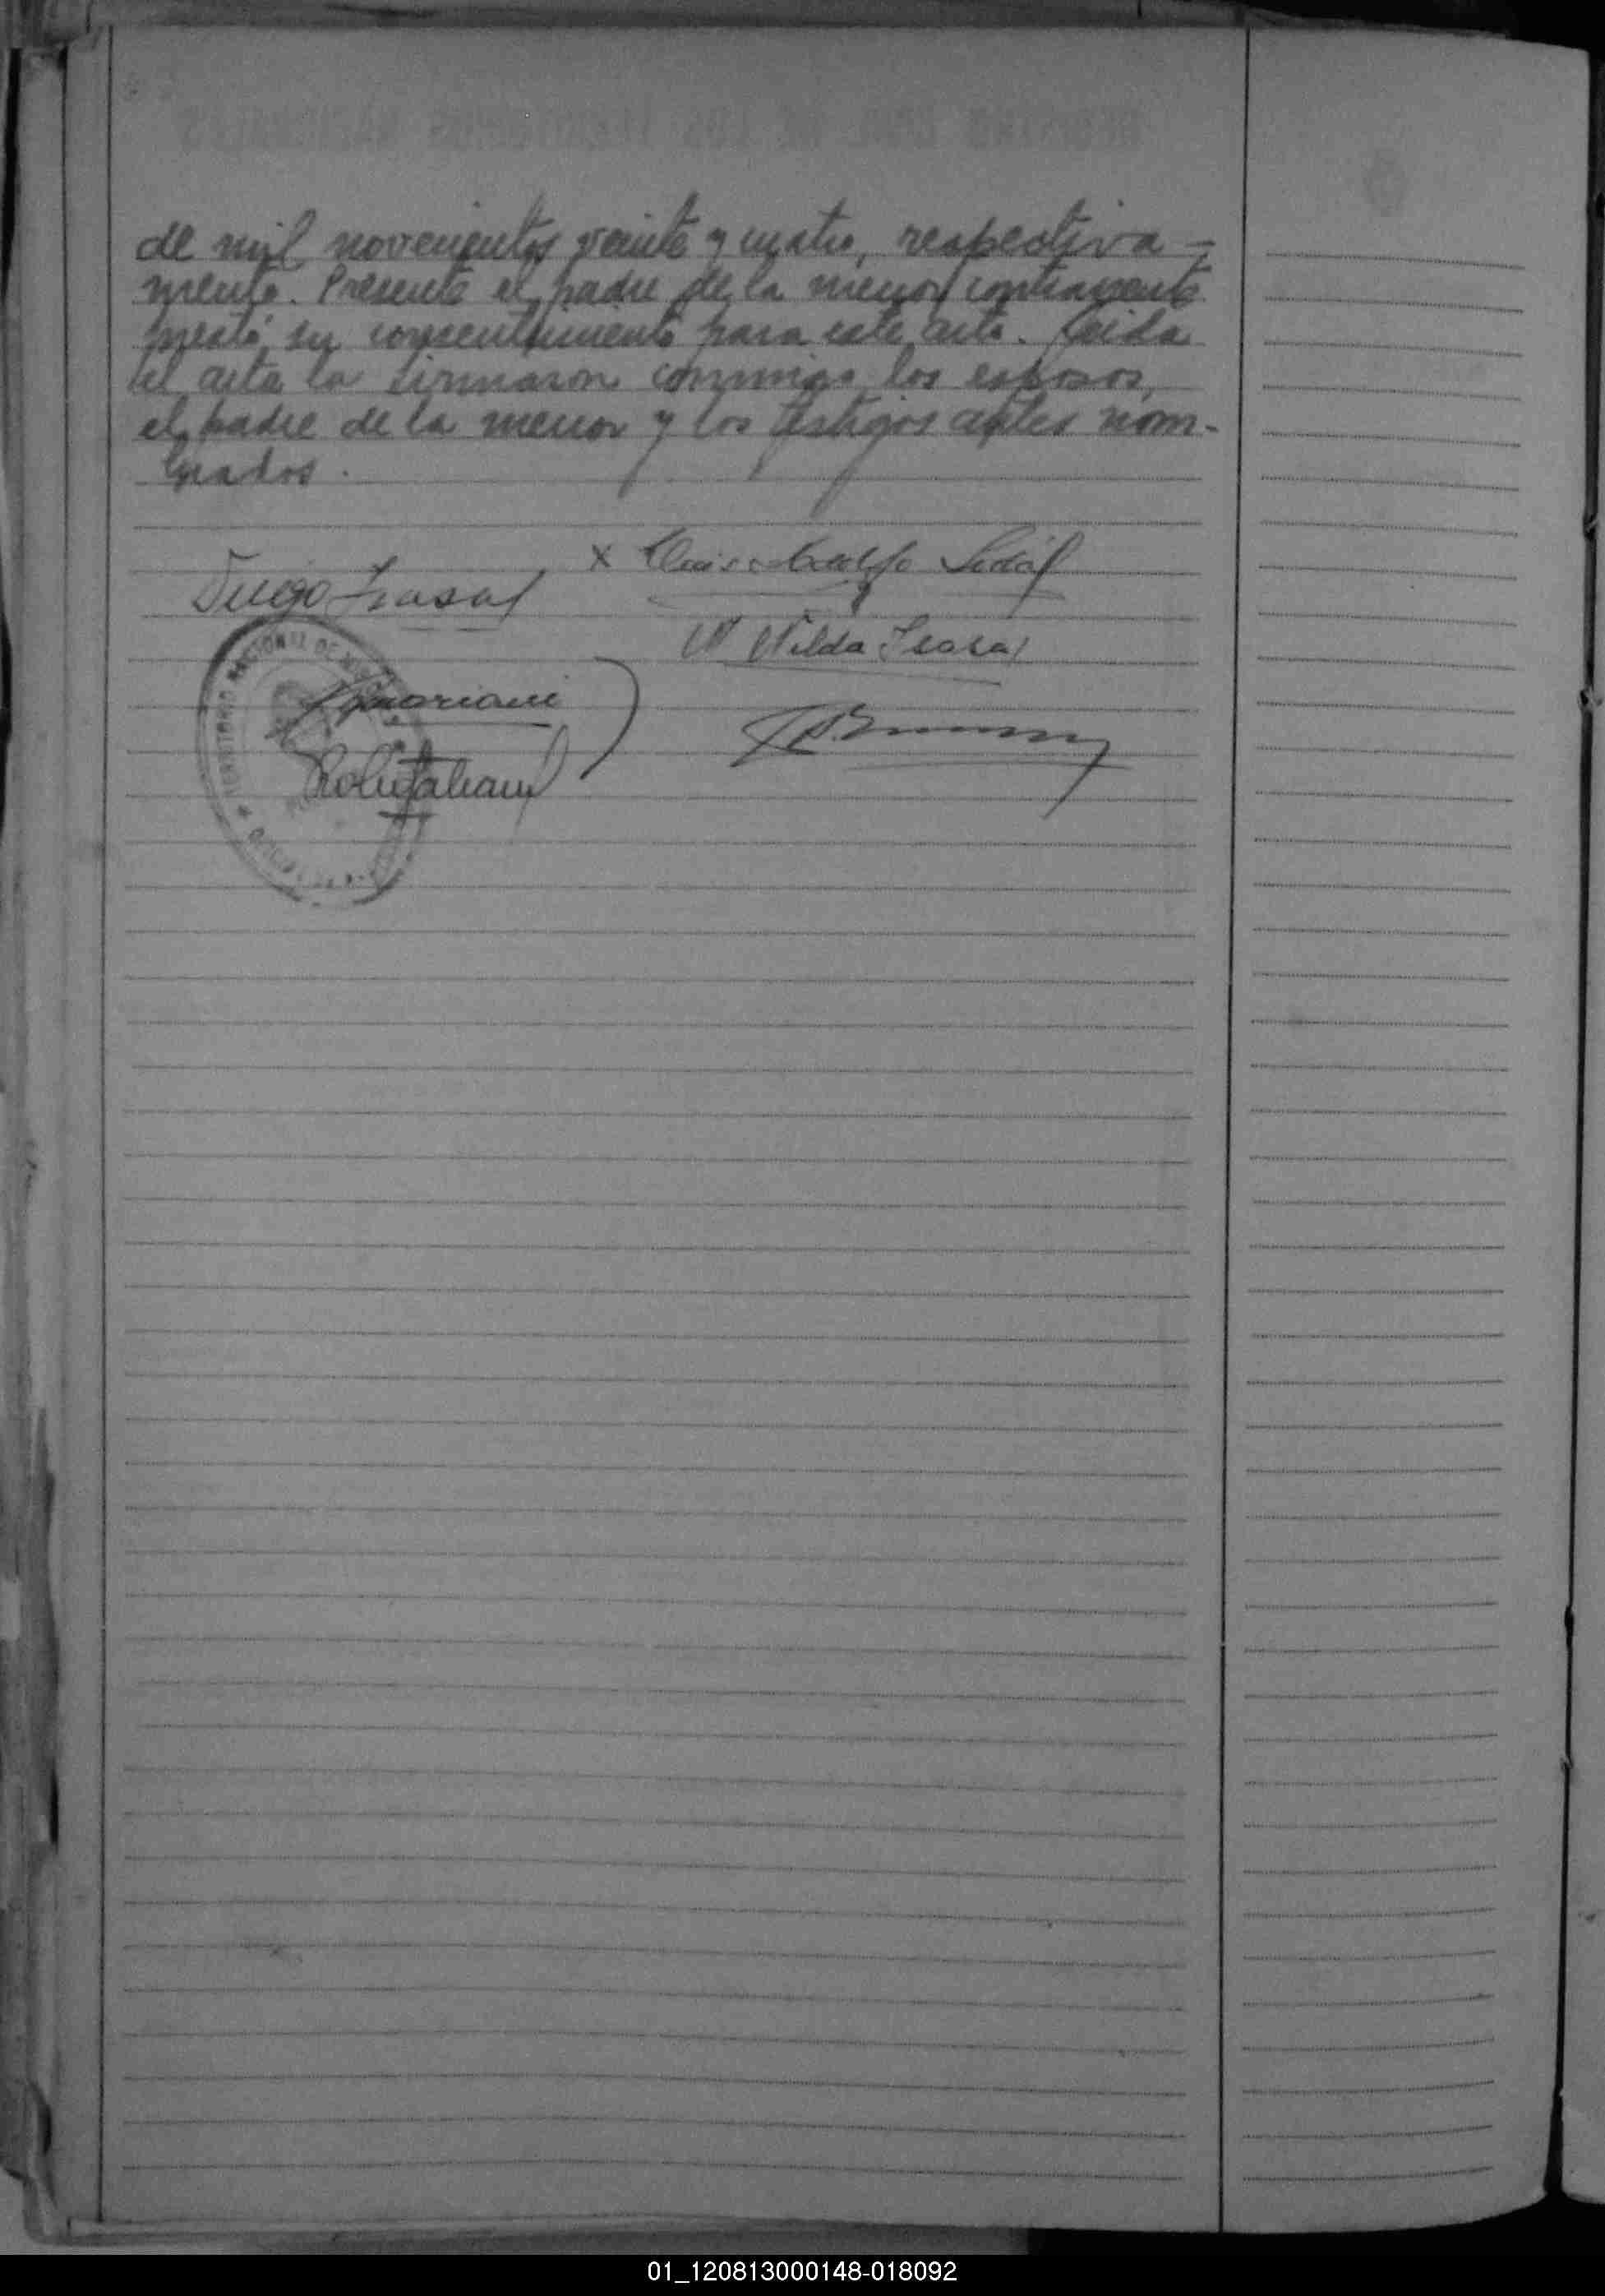 de mil novecientos veinte y cuatro, respectiva-
mente. Presente el padre de la menor contrayente
prestó su consentimiento para este acto. Leida
el acta la firmaron conmigo los esposos,
el padre de la menor y los testigos antes nom-
brados.
x Luis Adolfo
Diego
N Nilda
TERRITORIO NACIONAL DE
01_120813000148-018092